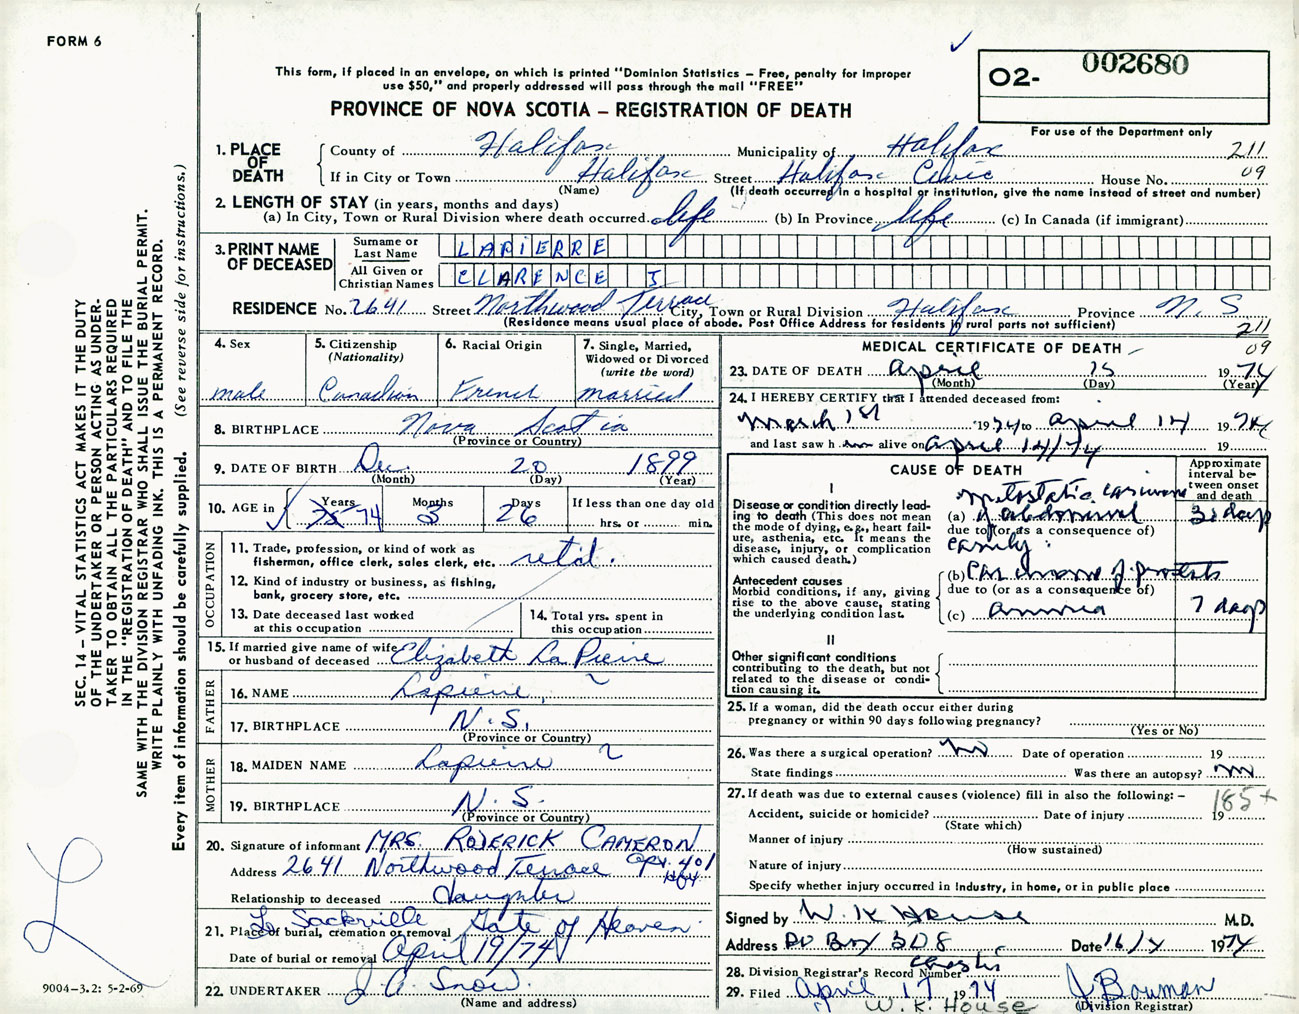 FORM 6
This form, if placed in an envelope, on which is printed "Dominion Statistics – Free, penalty for improper
use $50," and properly addressed will pass through the mail "FREE"
PROVINCE OF NOVA SCOTIA – REGISTRATION OF DEATH
02- 002680
For use of the Department only
1. PLACE OF DEATH
County of Halifax Municipality of Halifax 211
If in City or Town Halifax Street Halifax Civic House No. 09
(Name) (If death occurred in a hospital or institution, give the name instead of street and number)
2. LENGTH OF STAY (in years, months and days)
(a) In City, Town or Rural Division where death occurred life (b) In Province life (c) In Canada (if immigrant)
3. PRINT NAME OF DECEASED
Surname or Last Name LAPIERRE
All Given or Christian Names CLARENCE J
RESIDENCE No. 2641 Street Northwood Terrace City, Town or Rural Division Halifax Province N.S.
(Residence means usual place of abode. Post Office Address for residents in rural parts not sufficient) 211
09
4. Sex
male
5. Citizenship
(Nationality)
Canadian
6. Racial Origin
French
7. Single, Married,
Widowed or Divorced
(write the word)
married
8. BIRTHPLACE Nova Scotia
(Province or Country)
9. DATE OF BIRTH Dec. 20 1899
(Month) (Day) (Year)
10. AGE in Years 75 74 Months 3 Days 26
If less than one day old
hrs. or min.
OCCUPATION
11. Trade, profession, or kind of work as
fisherman, office clerk, sales clerk, etc. retd.
12. Kind of industry or business, as fishing,
bank, grocery store, etc.
13. Date deceased last worked
at this occupation
14. Total yrs. spent in
this occupation
15. If married give name of wife
or husband of deceased Elizabeth LaPierre
FATHER
16. NAME Lapierre
17. BIRTHPLACE N.S.
(Province or Country)
MOTHER
18. MAIDEN NAME Lapierre
19. BIRTHPLACE N.S.
(Province or Country)
20. Signature of informant MRS. RODERICK CAMERON
Address 2641 Northwood Terrace Apt. 401
Hfx
Relationship to deceased daughter
21. Place of burial, cremation or removal Lr Sackville Gate of Heaven
Date of burial or removal April 19/74
22. UNDERTAKER J. A. Snow
(Name and address)
MEDICAL CERTIFICATE OF DEATH
23. DATE OF DEATH April 15 1974
(Month) (Day) (Year)
24. I HEREBY CERTIFY that I attended deceased from:
March 1st 1974 to April 14 1974
and last saw him alive on April 14/74 19
CAUSE OF DEATH
Approximate interval between onset and death
I
Disease or condition directly leading to death (This does not mean the mode of dying, e.g., heart failure, asthenia, etc. It means the disease, injury, or complication which caused death.)
metastatic carcinoma
(a) of abdominal 3 days
due to (or as a consequence of)
cavity.
Antecedent causes
Morbid conditions, if any, giving rise to the above cause, stating the underlying condition last.
(b) Carcinoma of prostate
due to (or as a consequence of)
(c) anuria 7 days
II
Other significant conditions
contributing to the death, but not related to the disease or condition causing it.
25. If a woman, did the death occur either during
pregnancy or within 90 days following pregnancy?
(Yes or No)
26. Was there a surgical operation? no Date of operation 19
State findings Was there an autopsy? no
27. If death was due to external causes (violence) fill in also the following: – 185+
Accident, suicide or homicide? Date of injury 19
(State which)
Manner of injury
(How sustained)
Nature of injury
Specify whether injury occurred in Industry, in home, or in public place
Signed by W. K House M.D.
Address PO Box 308 Date 16/4 1974
28. Division Registrar's Record Number
29. Filed April 17 1974 J Bowman
W.K. House (Division Registrar)
SEC. 14 – VITAL STATISTICS ACT MAKES IT THE DUTY
OF THE UNDERTAKER OR PERSON ACTING AS UNDER-
TAKER TO OBTAIN ALL THE PARTICULARS REQUIRED
IN THE "REGISTRATION OF DEATH" AND TO FILE THE
SAME WITH THE DIVISION REGISTRAR WHO SHALL ISSUE THE BURIAL PERMIT.
WRITE PLAINLY WITH UNFADING INK. THIS IS A PERMANENT RECORD.
Every item of information should be carefully supplied. (See reverse side for instructions.)
9004-3.2: 5-2-69